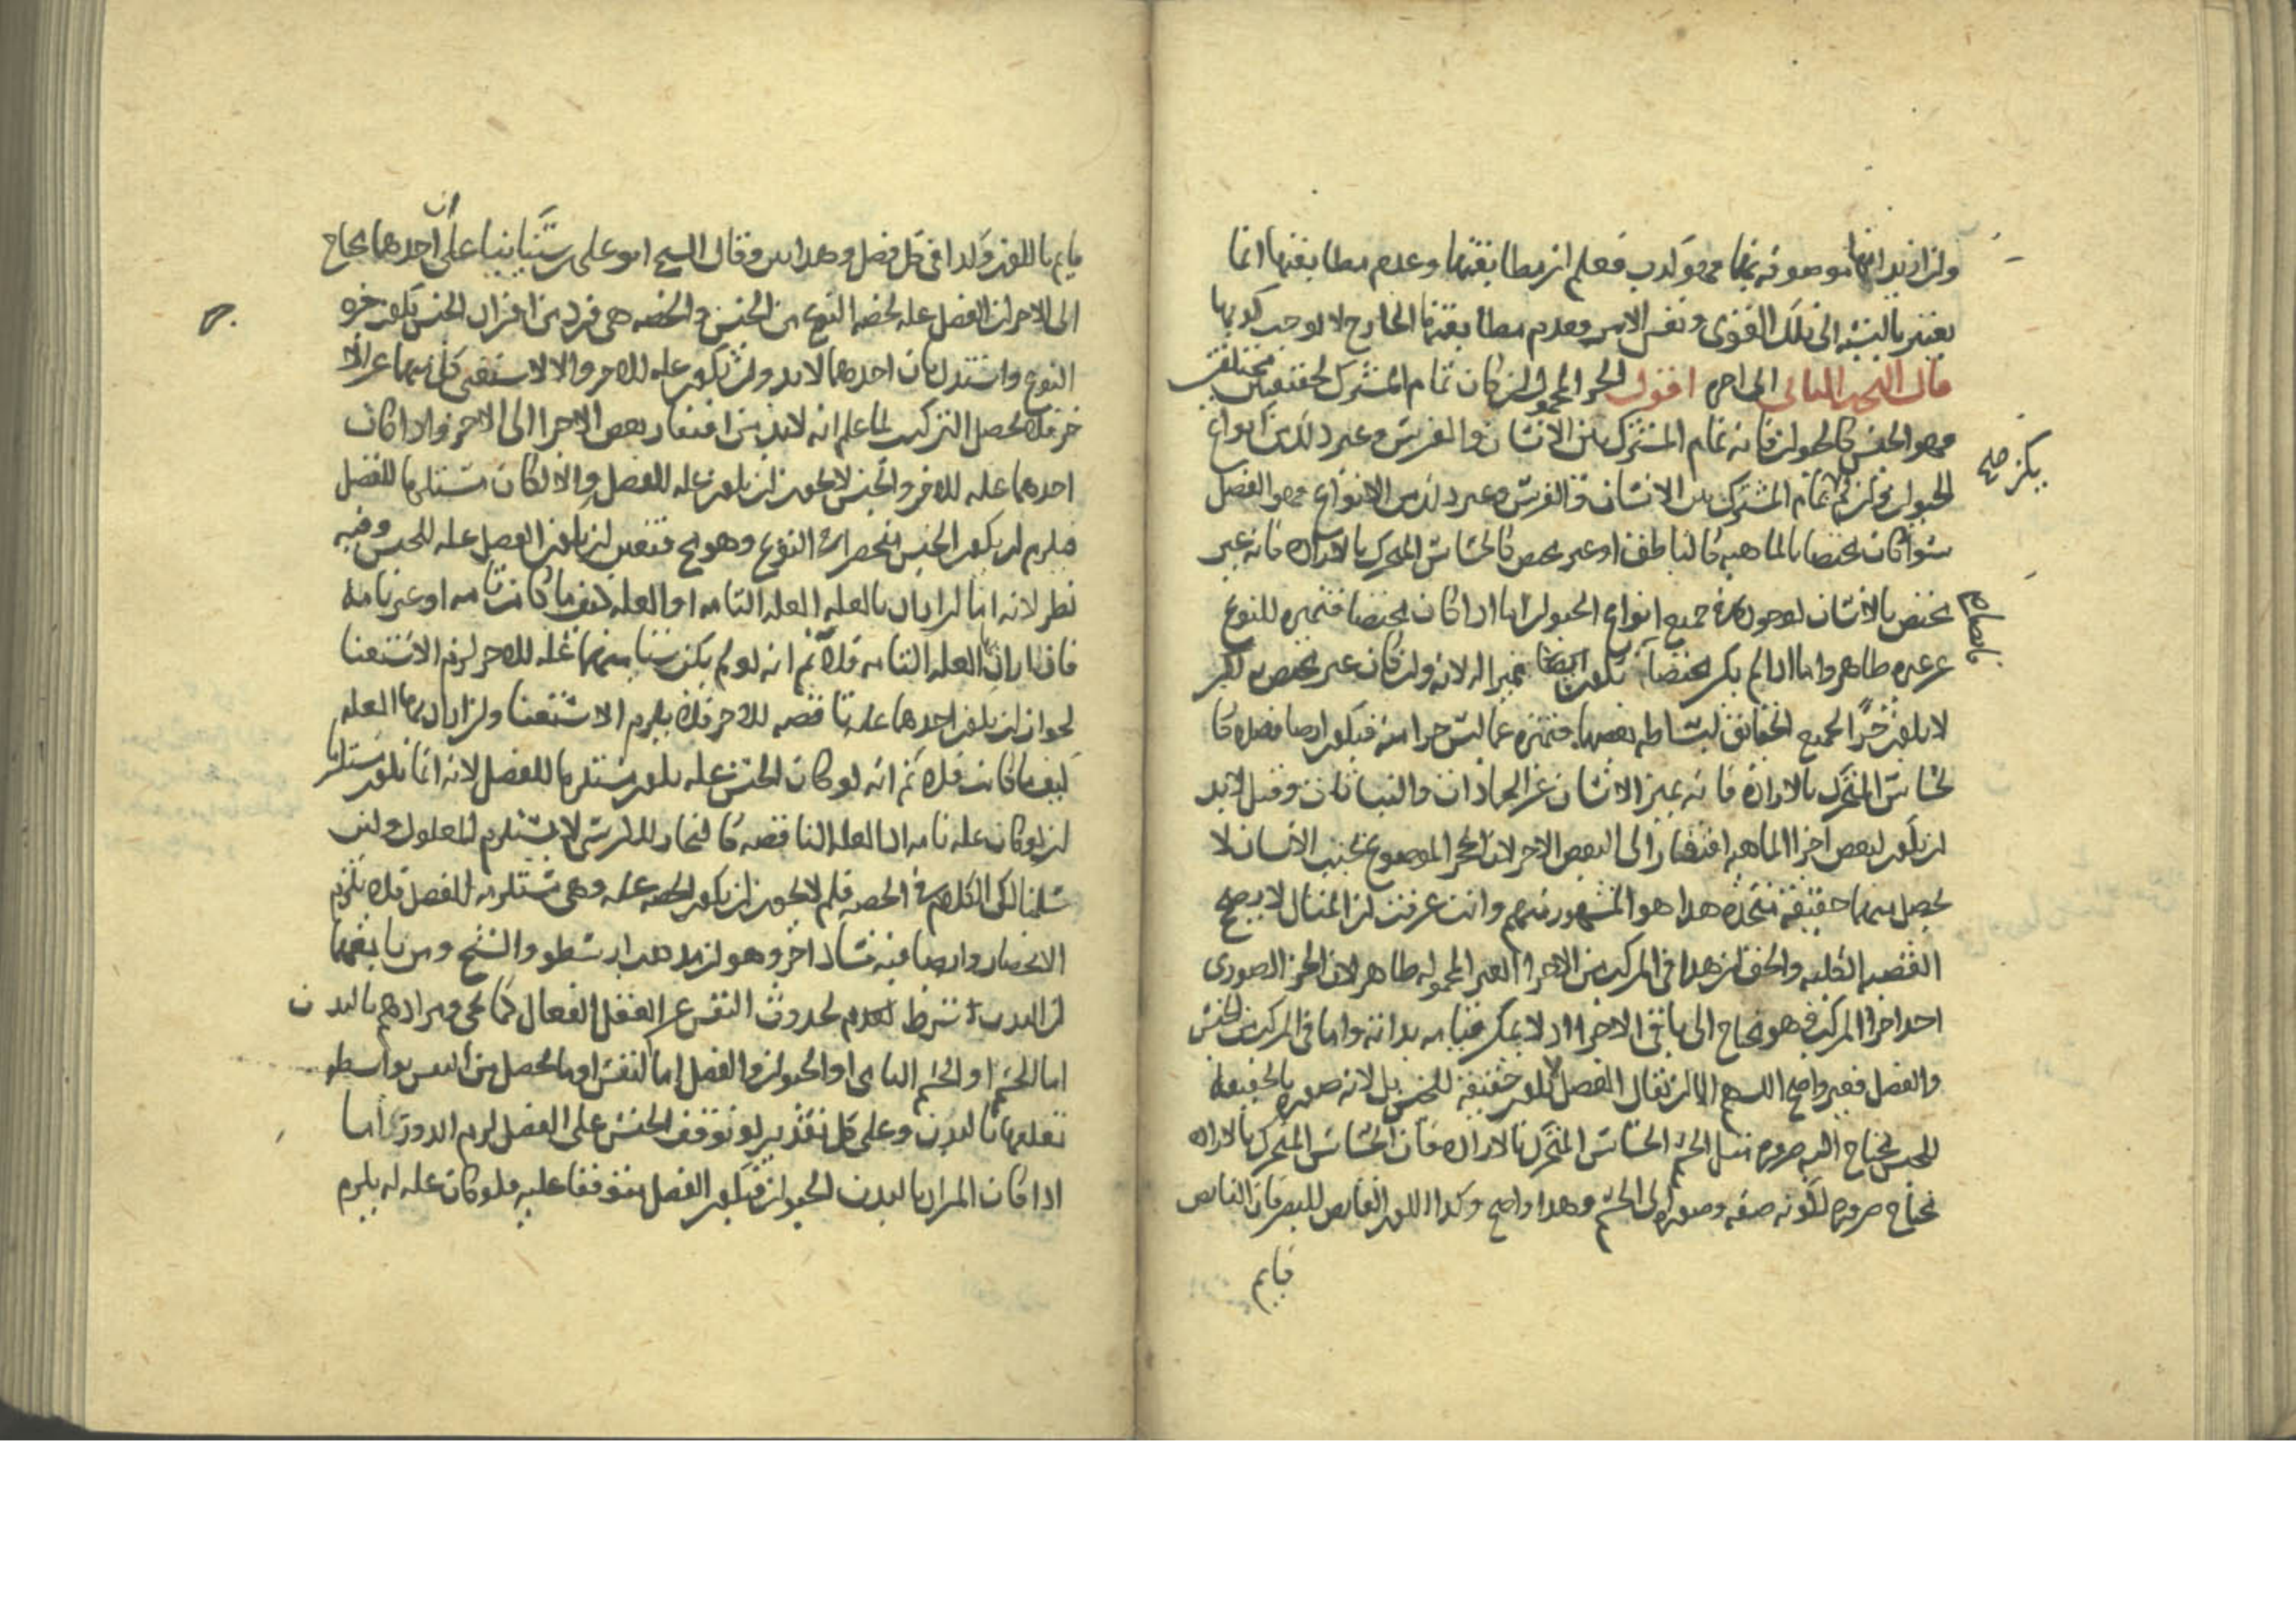 وان اريد انها موصوفة بها فهو كذب فعلم ان مطابقتها وعدم مطابقتها انما
يعتبر بالنسبة الى تلك القوى ونفس الامر وعدم مطابقتها الخارج لا يوجب كذبها
قال البحث الثانى الى اخره اقول الجزء المحمول ان كان تمام المشترك لحقيقتين مختلفتين
فهو الجنس كالحيوان فانه تمام المشترك بين الانسان والفرس وغير ذلك من انواع
الحيوان وان لم يكن تمام المشترك بين الانسان والفرس وغير ذلك من الانواع فهو الفصل
يكن صح
سواء كان مختصا بالماهية كالناطق او غير مختص كالحساس المتحرك بالارادة فانه غير
مختص بالانسان لوجوده في جميع انواع الحيوان اما اذا كان مختصا فتميزه للنوع
عن غيره ظاهر واما اذا لم يكن مختصا يكون ايضا مميزا له لانه وان كان غير مختص به لكن
لا يكون جزءا لجميع الحقائق لبساطة بعضها فتميزه عما ليس جزءا منه فيكون ايضا فصلا كا
لحساس المتحرك بالارادة فانه يميز الانسان عن الجمادات والنباتات وقيل لا بد
ان يكون لبعض اجزاء الماهية افتقار الى البعض الاخر لان الحجر الموضوع بجنب الانسان لا
يحصل منهما حقيقة متحدة هذا هو المشهور منهم وانت عرفت ان المثال لا يصحح
القضية الكلية والحق ان هذا فى المركب من الاجزاء الغير المحمولة ظاهر لان الجزء الصورى
احد اجزاء المركب وهو محتاج الى باقى الاجزاء اذ لا يمكن قيامه بذاته واما فى المركب من الجنس
والفصل فغير واضح اللهم الا ان يقال الفصل لا يكون حقيقة للجنس بل لانه صورة بالحقيقة
للجنس يحتاج اليه ضرورة مثل الجسم الحساس المتحرك بالارادة فان الحساس المتحرك بالارادة
محتاج ضرورة لكونه صفة وصورة الى الجسم وهذا واضح وكذا اللون القابض للبصر فان القابض
قايم
قايم باللون وكذا فى كل فصل وهذا بين وقال الشيخ ابو على بن سينا بناء على ان احدهما محتاج
الى الاخر ان الفصل علة لحصة النوع من الجنس والحصة هى فرد من افراد الجنس يكون جزء
النوع واستدل بان احدهما لا بد وان يكون علة للاخر والا لاستغنى كل منهما عن الا
خر فلا يحصل التركيب لما علم انه لا بد من افتقار بعض الاجزاء الى الاخر واذا كان
احدهما علة للاخر والجنس لا يجوز ان يكون علة للفصل والا لكان مستلزما للفصل
فيلزم ان يكون الجنس منحصرا فى النوع وهو مح فتعين ان يكون الفصل علة للجنس وفيه
نظر لانه اما ان اراد بالعلة العلة التامة او العلة كيف ما كانت تامة او غير تامة
فان اراد بها العلة التامة فلا نم انه لو لم يكن شيئا منهما علة للاخر لزم الاستغنا
لجواز ان يكون احدهما علة ناقصة للاخر فلا يلزم الاستغنا وان اراد بها العلة
كيف ما كانت فلا نم انه لو كان الجنس علة يكون مستلزما للفصل لانه انما يكون مستلزما
ان لو كان علة تامة اذ العلة الناقصة كالنجار للكرسى لا يستلزم للمعلول ولئن
سلمنا لكن الكلام فى الحصة فلم لا يجوز ان يكون الحصة علة وهى مستلزمة للفصل فلا يلزم
الانحصار وايضا فيه فساد اخر وهو ان مذهب ارسطو والشيخ ومن تابعهما
ان البدن شرط لعدم لحدوث النفس عن العقل الفعال كما يجى ومرادهم بالبدن
اما الجسم او الجسم النامى او الحيوان والفصل اما النفس او ما يحصل من النفس بواسطة
تعلقها بالبدن وعلى كل تقدير لو توقف الجنس على الفصل لزم الدور اما
اذا كان المراد بالبدن الحيوان فيكون الفصل متوقفا عليه فلو كان علة له يلزم